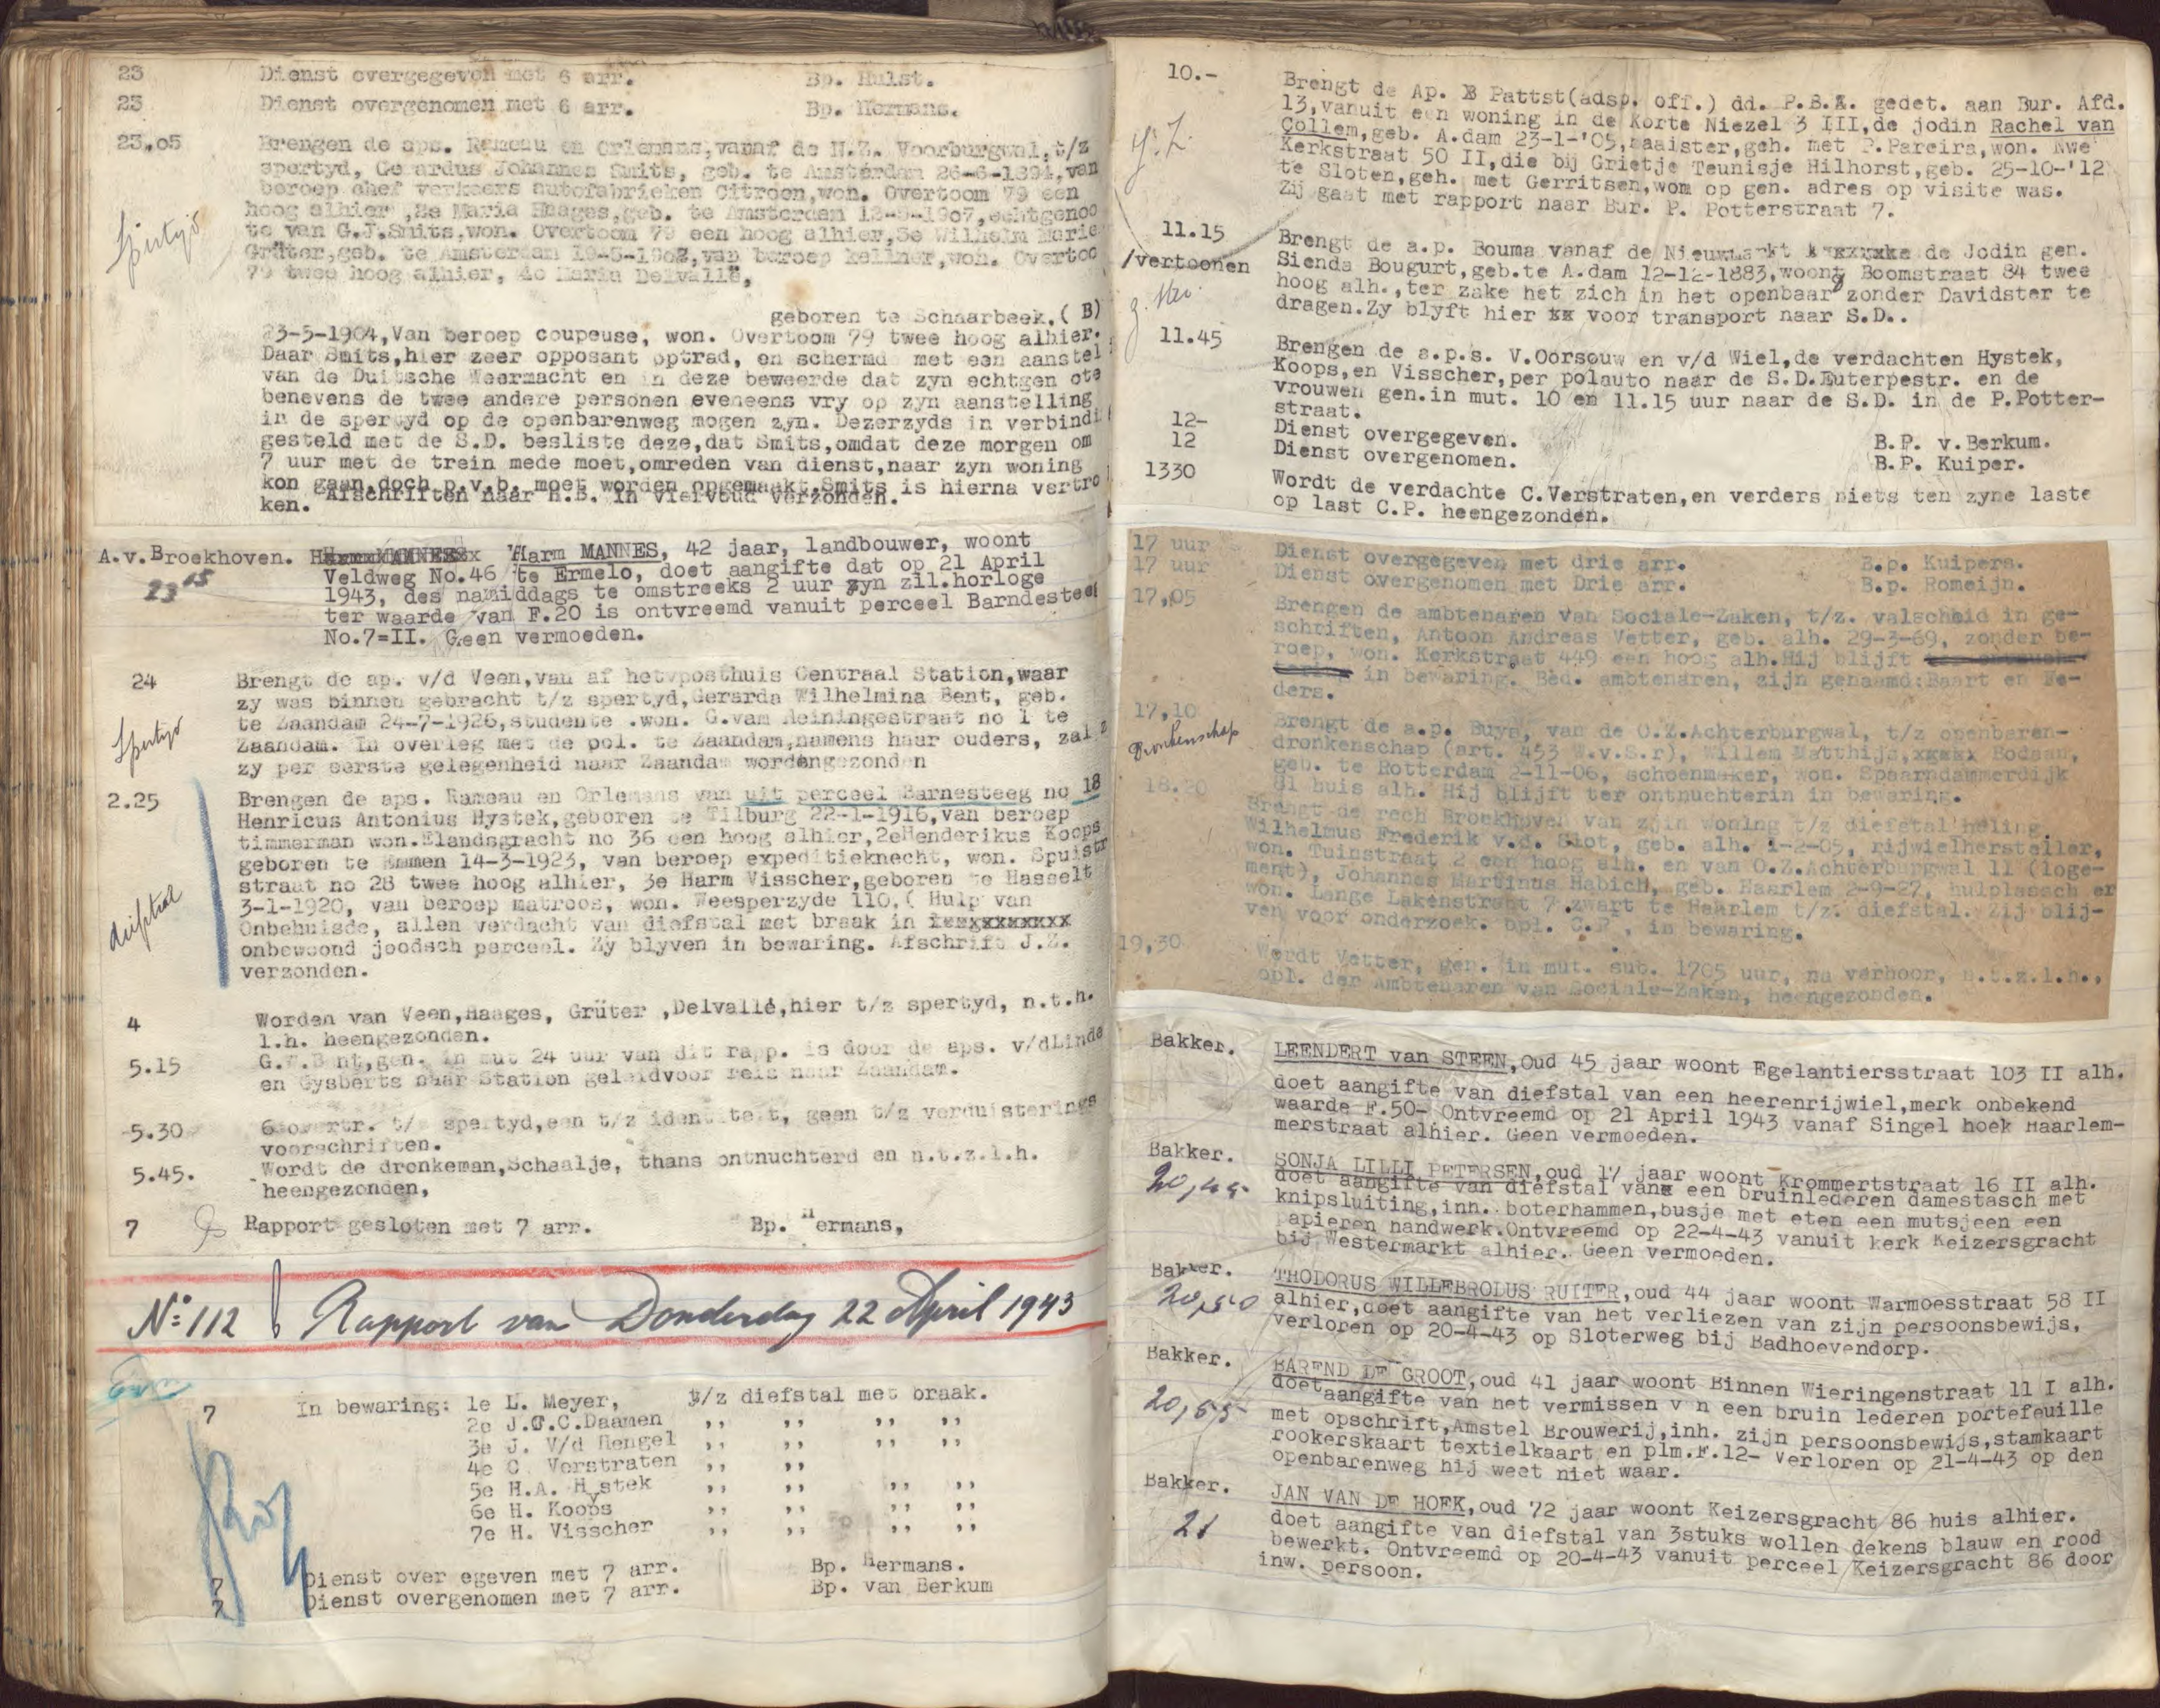 23 Dienst overgegeven met 6 arr. Bp. Hulst.
23 Dienst overgenomen met 6 arr. Bp. Hermans.
23,05 Brengen de aps. Rameau en Orlemans,vanaf de N.Z. Voorburgwal,t/z
spertyd, Gerardus Johannes Smits, geb. te Amsterdam 26-6-1894,van
beroep chef verkoers autofabrieken Citroen,won. Overtoom 79 een
hoog alhier ,2e Maria Haages,geb. te Amsterdam 12-5-1907,echtgenoo
Spertijd
te van G.J.Smits,won. Overtoom 79 een hoog alhier,3e Wilhelm Marie
Grüter,geb. te Amsterdam 19-5-1902,van beroep kellner,won. Overtoo
79 twee hoog alhier, 4e Maria Delvallé,
geboren te Schaarbeek.( B)
23-5-1904,Van beroep coupeuse, won. Overtoom 79 twee hoog alhier.
Daar Smits,hier zeer opposant optrad, en schermde met een aanstel
van de Duitsche Weermacht en in deze beweerde dat zyn echtgen ote
benevens de twee andere personen eveneens vry op zyn aanstelling
in de spertyd op de openbarenweg mogen zyn. Dezerzyds in verbindi
gesteld met de S.D. besliste deze,dat Smits,omdat deze morgen om
7 uur met de trein mede moet,omreden van dienst,naar zyn woning
kon gaan,doch p.v.b. moet worden opgemaakt.Smits is hierna vertro
ken. Afschriften naar H.B. in viervoud verzonden.
A.v.Broekhoven. Harm MANNES, 42 jaar, landbouwer, woont
Veldweg No.46 te Ermelo, doet aangifte dat op 21 April
23 15
1943, des namiddags te omstreeks 2 uur zyn zil.horloge
ter waarde van F.20 is ontvreemd vanuit perceel Barndesteeg
No.7=II. Geen vermoeden.
24 Brengt de ap. v/d Veen,van af hetvposthuis Centraal Station,waar
zy was binnen gebracht t/z spertyd,Gerarda Wilhelmina Bent, geb.
te Zaandam 24-7-1926,studente .won. G.vam Heiningestraat no 1 te
Spertijd
Zaandam. In overleg met de pol. te Zaandam,namens haur ouders, zal
zy per eerste gelegenheid naar Zaandam wordengezonden
2.25 Brengen de aps. Rameau en Orlemans van uit perceel Barnesteeg no 18
Henricus Antonius Hystek,geboren te Tilburg 22-1-1916,van beroep
timmerman won.Elandsgracht no 36 een hoog alhier,2eHenderikus Koops
geboren te Emmen 14-3-1923, van beroep expeditieknecht, won. Spuistr
straat no 28 twee hoog alhier, 3e Harm Visscher,geboren te Hasselt
diefstal
3-1-1920, van beroep matroos, won. Weesperzyde 110,( Hulp van
Onbehuisde, allen verdacht van diefstal met braak in
onbewoond joodsch perceel. Zy blyven in bewaring. Afschrift J.Z.
verzonden.
4 Worden van Veen,Haages, Grüter ,Delvallé,hier t/z spertyd, n.t.h.
l.h. heengezonden.
5.15 G.W.Bent,gen. in mut 24 uur van dit rapp. is door de aps. v/dLinde
en Gysberts naar Station geleidvoor reis naar Zaandam.
5.30 6 overtr. t/z spertyd,een t/z identiteit, geen t/z verduisterings
voorschriften.
5.45. Wordt de dronkeman,Schaalje, thans ontnuchterd en n.t.z.l.h.
heengezonden,
7 Rapport gesloten met 7 arr. Bp. Hermans,
No 112 Rapport van Donderdag 22 April 1943
7 In bewaring: 1e L. Meyer, t/z diefstal met braak.
2e J.C.C.Daamen ,, ,, ,, ,,
3e J. V/d Hengel ,, ,, ,, ,,
4e C. Verstraten ,, ,,
5e H.A. Hystek ,, ,, ,, ,,
6e H. Koops ,, ,, ,, ,,
7e H. Visscher ,, ,, ,, ,,
7 Dienst over egeven met 7 arr. Bp. Hermans.
7 Dienst overgenomen met 7 arr. Bp. van Berkum
10.- Brengt de Ap. B Pattst(adsp. off.) dd. P.B.A. gedet. aan Bur. Afd.
13,vanuit een woning in de Korte Niezel 3 III,de jodin Rachel van
Collem,geb. A.dam 23-1-'05,naaister,geh. met P.Pareira,won. Nwe
Kerkstraat 50 II,die bij Grietje Teunisje Hilhorst,geb. 25-10-'12
te Sloten,geh. met Gerritsen,wom op gen. adres op visite was.
Zij gaat met rapport naar Bur. P. Potterstraat 7.
11.15 Brengt de a.p. Bouma vanaf de Nieuwmarkt de Jodin gen.
/vertoonen Sienda Bougurt,geb.te A.dam 12-12-1883,woont Boomstraat 84 twee
hoog alh.,ter zake het zich in het openbaar zonder Davidster te
dragen.Zy blyft hier voor transport naar S.D..
11.45 Brengen de a.p.s. V.Oorsouw en v/d Wiel,de verdachten Hystek,
Koops,en Visscher,per polauto naar de S.D.Euterpestr. en de
vrouwen gen.in mut. 10 en 11.15 uur naar de S.D. in de P.Potter-
straat.
12- Dienst overgegeven. B.P. v.Berkum.
12 Dienst overgenomen. B.P. Kuiper.
1330 Wordt de verdachte C.Verstraten,en verders niets ten zyne laste
op last C.P. heengezonden.
17 uur Dienst overgegeven met drie arr. B.p. Kuipers.
17 uur Dienst overgenomen met Drie arr. B.p. Romeijn.
17,05 Brengen de ambtenaren van Sociale-Zaken, t/z. valscheid in ge-
schriften, Antoon Andreas Vetter, geb. alh. 29-3-69, zonder be-
roep, won. Kerkstraat 449 een hoog alh.Hij blijft
in bewaring. Bed. ambtenaren, zijn genaamd:Baart en Fe-
ders.
17,10 Brengt de a.p. Buys, van de O.Z.Achterburgwal, t/z openbaren-
Dronkenschap
dronkenschap (art. 453 W.v.S.r), Willem Matthijs, Bodaan,
geb. te Rotterdam 2-11-06, schoenmaker, won. Spaarndammerdijk
81 huis alh. Hij blijft ter ontnuchterin in bewaring.
18.20 Brengt de rech Broekhoven van zijn woning t/z diefstal heling
Wilhelmus Frederik v.d. Slot, geb. alh. 1-2-05, rijwielhersteller,
won. Tuinstraat 2 een hoog alh. en van O.Z.Achterburgwal 11 (loge-
ment), Johannes Martinus Habich, geb. Haarlem 2-9-27, hulplassch er
won. Lange Lakenstraat 7 zwart te Haarlem t/z. diefstal. Zij blij-
ven voor onderzoek. opl. C.P , in bewaring.
19,30 Wordt Vetter, gen. in mut. sub. 1705 uur, na verhoor, n.t.z.l.h.,
opl. der Ambtenaren van Sociale-Zaken, heengezonden.
Bakker. LEENDERT van STEEN,Oud 45 jaar woont Egelantiersstraat 103 II alh.
doet aangifte van diefstal van een heerenrijwiel,merk onbekend
waarde F.50- Ontvreemd op 21 April 1943 vanaf Singel hoek Haarlem-
merstraat alhier. Geen vermoeden.
Bakker. SONJA LILLI PETERSEN,oud 17 jaar woont Krommertstraat 16 II alh.
20,45 doet aangifte van diefstal van een bruinlederen damestasch met
knipsluiting,inh. boterhammen,busje met eten een mutsjeen een
papieren handwerk.Ontvreemd op 22-4-43 vanuit kerk Keizersgracht
bij Westermarkt alhier. Geen vermoeden.
Bakker. THODORUS WILLEBROLUS RUITER,oud 44 jaar woont Warmoesstraat 58 II
20,50 alhier,doet aangifte van het verliezen van zijn persoonsbewijs,
verloren op 20-4-43 op Sloterweg bij Badhoevendorp.
Bakker. BAREND DE GROOT,oud 41 jaar woont Binnen Wieringenstraat 11 I alh.
20,55 doet aangifte van het vermissen v n een bruin lederen portefeuille
met opschrift,Amstel Brouwerij,inh. zijn persoonsbewijs,stamkaart
rookerskaart textielkaart en plm.F.12- Verloren op 21-4-43 op den
openbarenweg hij weet niet waar.
Bakker. JAN VAN DE HOEK,oud 72 jaar woont Keizersgracht 86 huis alhier.
21 doet aangifte van diefstal van 3stuks wollen dekens blauw en rood
bewerkt. Ontvreemd op 20-4-43 vanuit perceel Keizersgracht 86 door
inw. persoon.